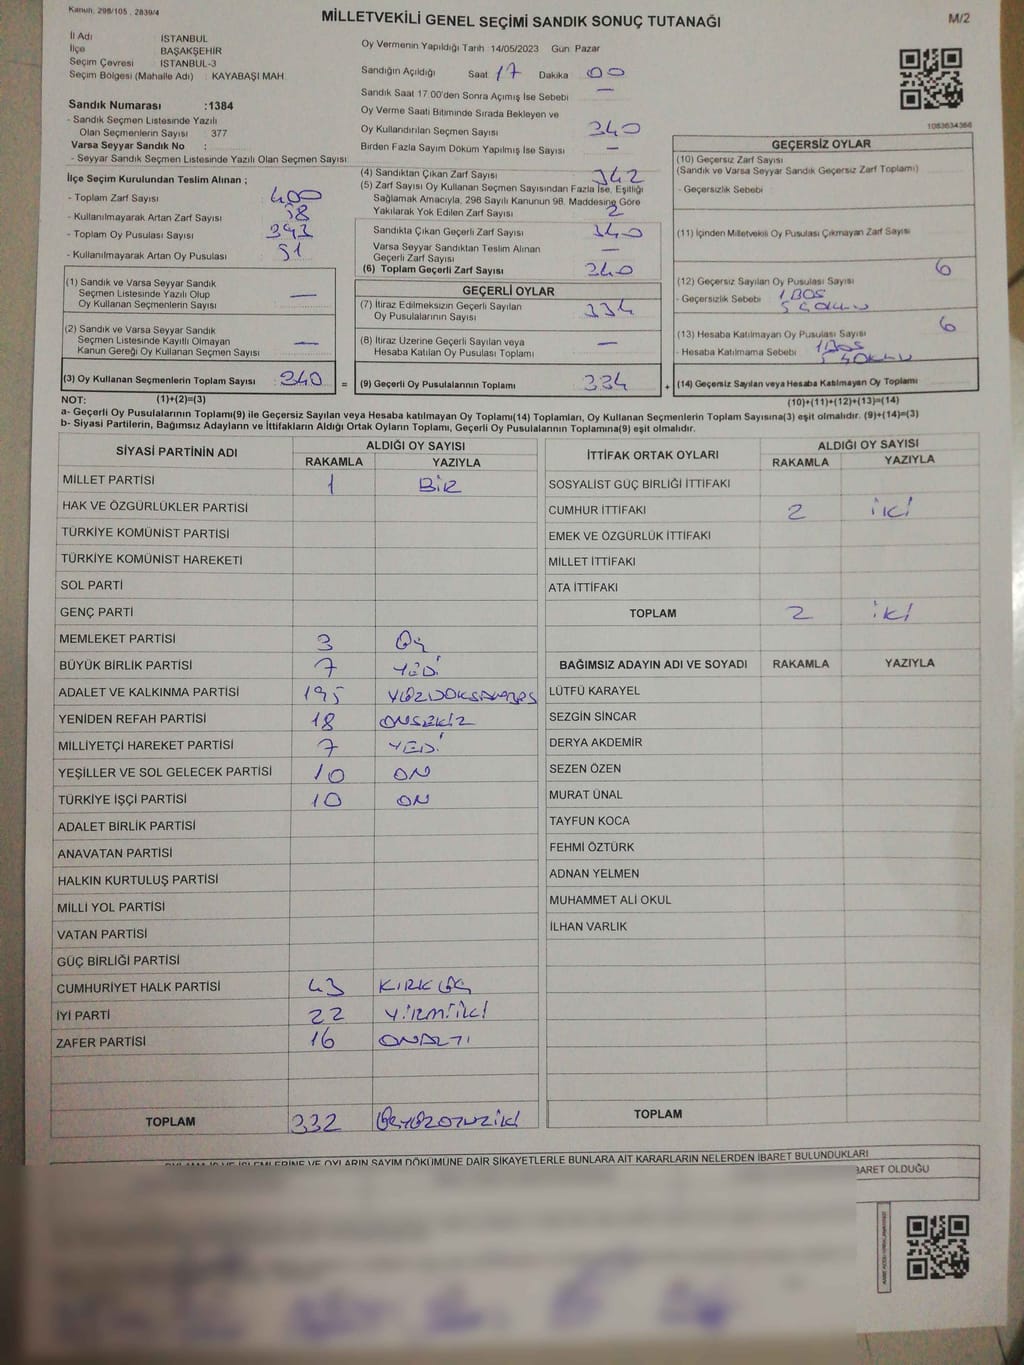 Kanun, 298/105 , 2839/4
MİLLETVEKİLİ GENEL SEÇİMİ SANDIK SONUÇ TUTANAĞI
M/2
İl Adı İSTANBUL
İlçe BAŞAKŞEHİR
Seçim Çevresi İSTANBUL-3
Seçim Bölgesi (Mahalle Adı) : KAYABAŞI MAH.
Sandık Numarası :1384
- Sandık Seçmen Listesinde Yazılı
Olan Seçmenlerin Sayısı : 377
Varsa Seyyar Sandık No :
- Seyyar Sandık Seçmen Listesinde Yazılı Olan Seçmen Sayısı:
İlçe Seçim Kurulundan Teslim Alınan ;
- Toplam Zarf Sayısı 400
- Kullanılmayarak Artan Zarf Sayısı 58
- Toplam Oy Pusulası Sayısı 393
- Kullanılmayarak Artan Oy Pusulası 51
(1) Sandık ve Varsa Seyyar Sandık
Seçmen Listesinde Yazılı Olup
Oy Kullanan Seçmenlerin Sayısı —
(2) Sandık ve Varsa Seyyar Sandık
Seçmen Listesinde Kayıtlı Olmayan
Kanun Gereği Oy Kullanan Seçmen Sayısı —
(3) Oy Kullanan Seçmenlerin Toplam Sayısı 340 =
Oy Vermenin Yapıldığı Tarih 14/05/2023 Gün Pazar
Sandığın Açıldığı Saat 17 Dakika 00
Sandık Saat 17:00'den Sonra Açımış İse Sebebi —
Oy Verme Saati Bitiminde Sırada Bekleyen ve
Oy Kullandırılan Seçmen Sayısı 340
Birden Fazla Sayım Döküm Yapılmış İse Sayısı —
(4) Sandıktan Çıkan Zarf Sayısı 342
(5) Zarf Sayısı Oy Kullanan Seçmen Sayısından Fazla İse, Eşitliği
Sağlamak Amacıyla, 298 Sayılı Kanunun 98. Maddesine Göre
Yakılarak Yok Edilen Zarf Sayısı 2
Sandıkta Çıkan Geçerli Zarf Sayısı 340
Varsa Seyyar Sandıktan Teslim Alınan
Geçerli Zarf Sayısı —
(6) Toplam Geçerli Zarf Sayısı 340
GEÇERLİ OYLAR
(7) İtiraz Edilmeksizin Geçerli Sayılan
Oy Pusulalarının Sayısı 334
(8) İtiraz Üzerine Geçerli Sayılan veya
Hesaba Katılan Oy Pusulası Toplamı —
(9) Geçerli Oy Pusulalarının Toplamı 334 +
1083634366
GEÇERSİZ OYLAR
(10) Geçersiz Zarf Sayısı
(Sandık ve Varsa Seyyar Sandık Geçersiz Zarf Toplamı)
- Geçersizlik Sebebi
(11) İçinden Milletvekili Oy Pusulası Çıkmayan Zarf Sayısı
(12) Geçersiz Sayılan Oy Pusulası Sayısı 6
- Geçersizlik Sebebi 1 BOŞ
(13) Hesaba Katılmayan Oy Pusulası Sayısı 6
- Hesaba Katılmama Sebebi 1 BOŞ
(14) Geçersiz Sayılan veya Hesaba Katılmayan Oy Toplamı
NOT: (1)+(2)=(3) (10)+(11)+(12)+(13)=(14)
a- Geçerli Oy Pusulalarının Toplamı(9) ile Geçersiz Sayılan veya Hesaba katılmayan Oy Toplamı(14) Toplamları, Oy Kullanan Seçmenlerin Toplam Sayısına(3) eşit olmalıdır. (9)+(14)=(3)
b- Siyasi Partilerin, Bağımsız Adayların ve İttifakların Aldığı Ortak Oyların Toplamı, Geçerli Oy Pusulalarının Toplamına(9) eşit olmalıdır.
SİYASİ PARTİNİN ADI ALDIĞI OY SAYISI
RAKAMLA YAZIYLA
MİLLET PARTİSİ 1 BİR
HAK VE ÖZGÜRLÜKLER PARTİSİ
TÜRKİYE KOMÜNİST PARTİSİ
TÜRKİYE KOMÜNİST HAREKETİ
SOL PARTİ
GENÇ PARTİ
MEMLEKET PARTİSİ 3 ÜÇ
BÜYÜK BİRLİK PARTİSİ 7 YEDİ
ADALET VE KALKINMA PARTİSİ 195 YÜZDOKSANBEŞ
YENİDEN REFAH PARTİSİ 18 ONSEKİZ
MİLLİYETÇİ HAREKET PARTİSİ 7 YEDİ
YEŞİLLER VE SOL GELECEK PARTİSİ 10 ON
TÜRKİYE İŞÇİ PARTİSİ 10 ON
ADALET BİRLİK PARTİSİ
ANAVATAN PARTİSİ
HALKIN KURTULUŞ PARTİSİ
MİLLİ YOL PARTİSİ
VATAN PARTİSİ
GÜÇ BİRLİĞİ PARTİSİ
CUMHURİYET HALK PARTİSİ 43 KIRKÜÇ
İYİ PARTİ 22 YİRMİİKİ
ZAFER PARTİSİ 16 ONALTI
TOPLAM 332 ÜÇYÜZOTUZİKİ
İTTİFAK ORTAK OYLARI ALDIĞI OY SAYISI
RAKAMLA YAZIYLA
SOSYALİST GÜÇ BİRLİĞİ İTTİFAKI
CUMHUR İTTİFAKI 2 İKİ
EMEK VE ÖZGÜRLÜK İTTİFAKI
MİLLET İTTİFAKI
ATA İTTİFAKI
TOPLAM 2 İKİ
BAĞIMSIZ ADAYIN ADI VE SOYADI RAKAMLA YAZIYLA
LÜTFÜ KARAYEL
SEZGİN SİNCAR
DERYA AKDEMİR
SEZEN ÖZEN
MURAT ÜNAL
TAYFUN KOCA
FEHMİ ÖZTÜRK
ADNAN YELMEN
MUHAMMET ALİ OKUL
İLHAN VARLIK
TOPLAM
OYLARIN SAYIM DÖKÜMÜNE DAİR ŞİKAYETLERLE BUNLARA AİT KARARLARIN NELERDEN İBARET BULUNDUKLARI
BARET OLDUĞU